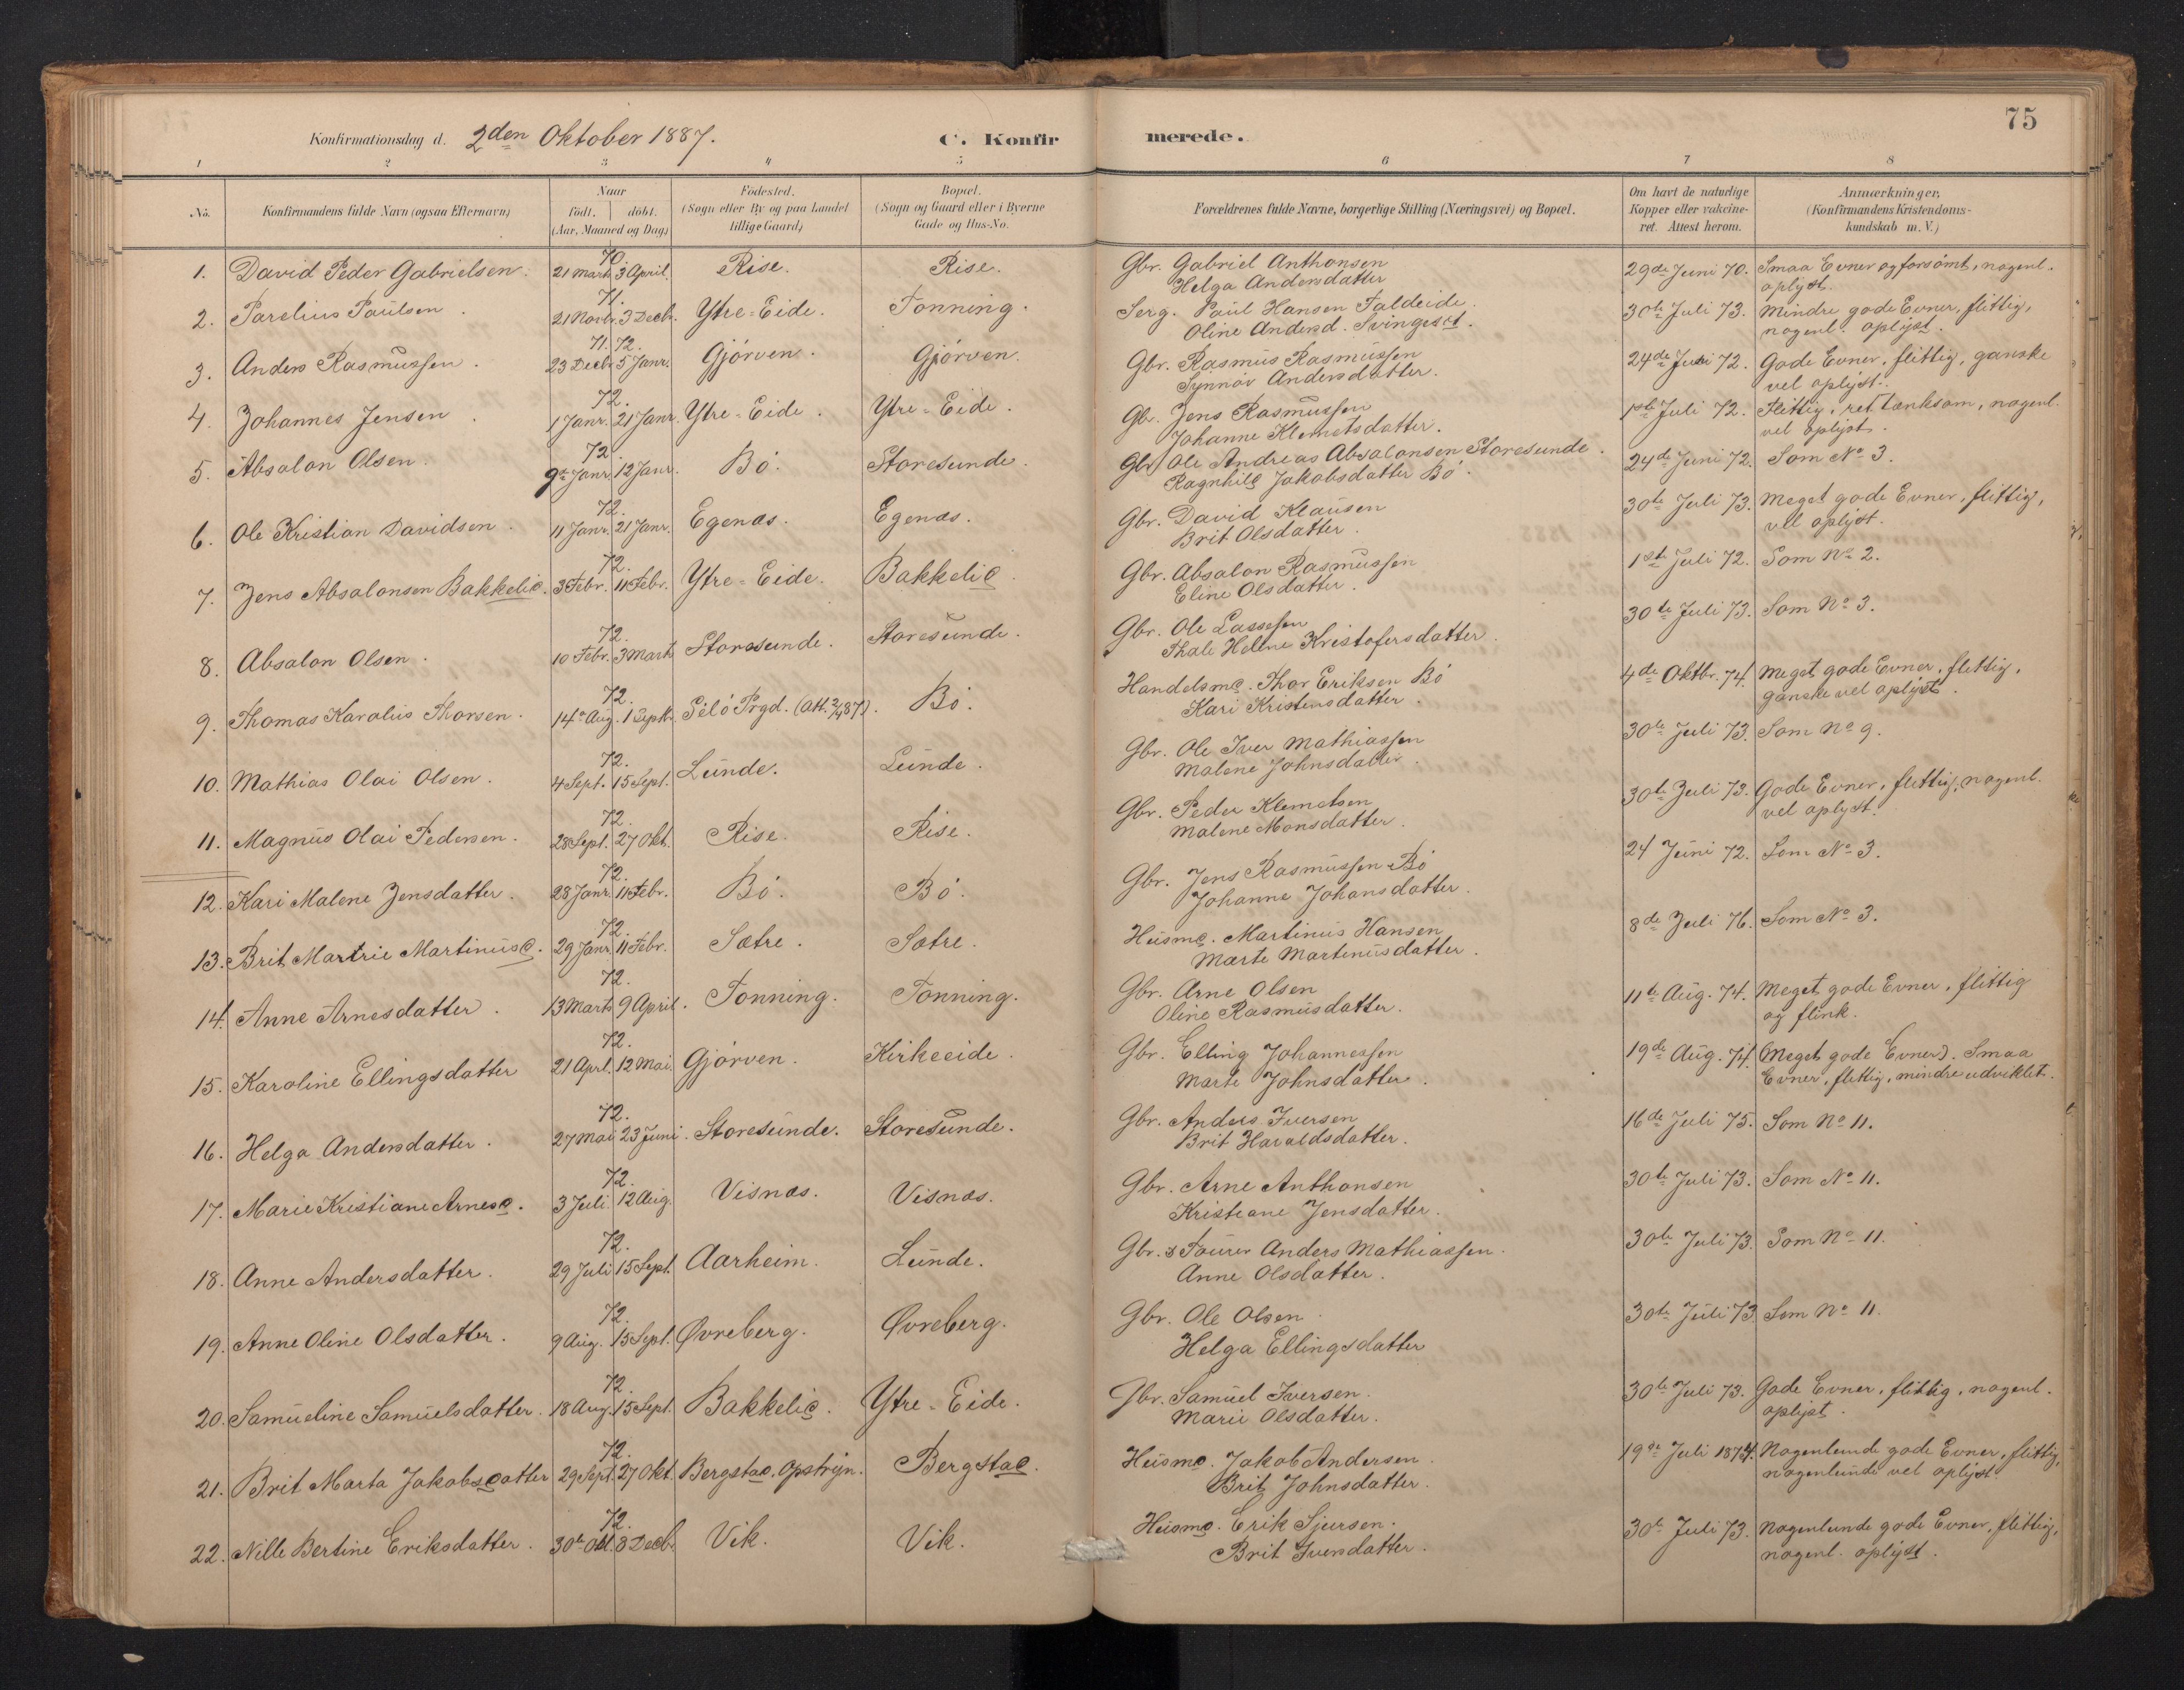 75
Konfirmationsdag d. 2den Oktober 1887. C. Konfirmerede.
1 2 3 4 5 6 7 8
No. Konfirmandens fulde Navn (ogsaa Efternavn) Naar født. døbt. (Aar, Maaned og Dag) Fødested. (Sogn eller By og paa Landet tillige Gaard) Bopæl. (Sogn og Gaard eller i Byerne Gade og Hus-No. Forældrenes fulde Navne, borgerlige Stilling (Næringsvei) og Bopæl. Om havt de naturlige Kopper eller vakcineret. Attest herom. Anmærkninger, (Konfirmandens Kristendomskundskab m. V.)
70.
1. David Peder Gabrielsen. 21 Marts 3 April. Rise. Rise. Gbr. Gabriel Anthonsen 29de Juni 70. Smaa Evner og forsømt, nogenl.
Helga Andersdatter oplyst.
71.
2. Parelius Paulsen. 21 Novbr. 3 Decbr. Ytre-Eide. Tonning. Serg. Paul Hansen Faldeide. 30te Juli 73. Mindre gode Evner, flittig,
Oline Andersd. Svingeset. nogenl. oplyst.
71. 72.
3. Anders Rasmussen. 23 Decbr. 5 Janr. Gjørven. Gjørven. Gbr. Rasmus Rasmussen 24de Juni 72. Gode Evner, flittig, ganske
Synnøv Andersdatter. vel oplyst.
72.
4. Johannes Jensen. 1 Janr. 21 Janr. Ytre-Eide. Ytre-Eide. Gbr. Jens Rasmussen 1ste Juli 72. Flittig, ret tænksom, nogenl.
Johanne Klemetsdatter. vel oplyst.
72.
5. Absalon Olsen. 9de Janr. 12 Janr. Bø. Storesunde. Gbr. Ole Andreas Absalonsen Storesunde. 24de Juni 72. Som No 3.
Ragnhild Jakobsdatter Bø.
72.
6. Ole Kristian Davidsen. 11 Janr. 21 Janr. Egenæs. Egenæs. Gbr. David Klausen 30te Juli 73. Meget gode Evner, flittig,
Brit Olsdatter. vel oplyst.
72.
7. Jens Absalonsen Bakkelid. 3 Febr. 11 Febr. Ytre-Eide. Bakkelid. Gbr. Absalon Rasmussen 1ste Juli 72. Som No 2.
Eline Olsdatter.
72.
8. Absalon Olsen. 10 Febr. 3 Marts Storesunde. Storesunde. Gbr. Ole Lassesen 30te Juli 73. Som No 3.
Thale Helene Kristofersdatter.
72.
9. Thomas Karolius Thorsen. 14de Aug. 1 Septr. Selø Prgd. (Att. 2/4 87). Bø. Handelsmd. Thor Eriksen Bø 4de Oktbr. 74. Meget gode Evner, flittig,
Kari Kristensdatter. ganske vel oplyst.
72.
10. Mathias Olai Olsen. 4 Sept. 15 Sept. Lunde. Lunde. Gbr. Ole Iver Mathiassen 30te Juli 73. Som No 9.
Malene Johnsdatter.
72.
11. Magnus Olai Pedersen. 28 Sept. 27 Okt. Rise. Rise. Gbr. Peder Klemetsen 30te Juli 73. Gode Evner, flittig, nogenl.
Malene Monsdatter. vel oplyst.
72.
12. Kari Malene Jensdatter. 28 Janr. 11 Febr. Bø. Bø. Gbr. Jens Rasmussen Bø 24 Juni 72. Som No 3.
Johanne Johansdatter.
72.
13. Brit Martrie Martinusd. 29 Janr. 11 Febr. Sætre. Sætre. Husmd. Martinus Hansen 8de Juli 76. Som No 3.
Marte Martinusdatter.
72.
14. Anne Arnesdatter. 13 Marts 9 April. Tonning. Tonning. Gbr. Arne Olsen 11te Aug. 74. Meget gode Evner, flittig
Oline Rasmusdatter. og flink.
72.
15. Karoline Ellingsdatter 21 Aprl. 12 Mai. Gjørven. Kirkeeide. Gbr. Elling Johannessen 19de Aug. 74. (Meget gode Evner). Smaa
Marte Johnsdatter. Evner, flittig, mindre udviklet.
72.
16. Helga Andersdatter. 27 Mai 23 Juni. Storesunde. Storesunde. Gbr. Anders Iversen 16de Juli 75. Som No 11.
Brit Haraldsdatter.
72.
17. Marie Kristiane Arnesd. 3 Juli. 12 Aug. Visnæs. Visnæs. Gbr. Arne Anthonsen 30te Juli 73. Som No 11.
Kristiane Jensdatter.
72.
18. Anne Andersdatter. 29 Juli 15 Sept. Aarheim. Lunde. Gbr. Anders Mathiassen. 30te Juli 73. Som No 11.
Anne Olsdatter.
72.
19. Anne Oline Olsdatter. 9 Aug. 15 Sept. Øvreberg. Øvreberg. Gbr. Ole Olsen. 30te Juli 73 Som No 11.
Helga Ellingsdatter
72.
20. Samueline Samuelsdatter. 18 Aug. 15 Sept. Bakkelid. Ytre-Eide. Gbr. Samuel Iversen. 30te Juli 73. Gode Evner, flittig, nogenl.
Marie Olsdatter. oplyst.
72.
21. Brit Marta Jakobsdatter 29 Sept. 27 Okt. Bergstad. Opstryn. Bergstad. Husmd. Jakob Andersen. 19de Juli 1874. Nogenlunde gode Evner, flittig,
Brit Johnsdatter. nogenlunde vel oplyst.
72.
22. Nille Bertine Eriksdatter. 30te Okt. 8 Decb. Vik. Vik. Husmd. Erik Sjursen. 30te Juli 73. Nogenlunde gode Evner, flittig,
Brit Iversdatter. nogenl. oplyst.